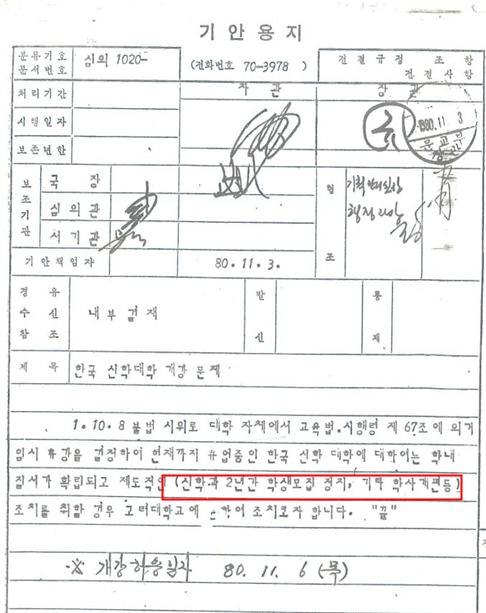 기 안 용 지
분류기호 문서번호 심의 1020- (전화번호 70-3978) 전결규정 조 항 전결사항
처리기간 차관 장관
시행일자 1980.11. 3 문교부
보존년한
보조기관 국 장 협조
심의관
서기관
기안책임자 80.11.3.
경유 수신 참조 내부결재 발신 통제
제 목 한국 신학대학 개강 문제
1. 10.8 불법 시위로 대학 자체에서 교육법.시행령 제 67조에 의거
임시 휴강을 결정하여 현재까지 휴업중인 한국 신학 대학에 대하여는 학내
질서가 확립되고 제도적인 (신학과 2년간 학생모집 정지, 기타 학사개편등)
조치를 취할 경우 조치코자 합니다. "끝"
※ 개강허용일자 80. 11. 6 (목)